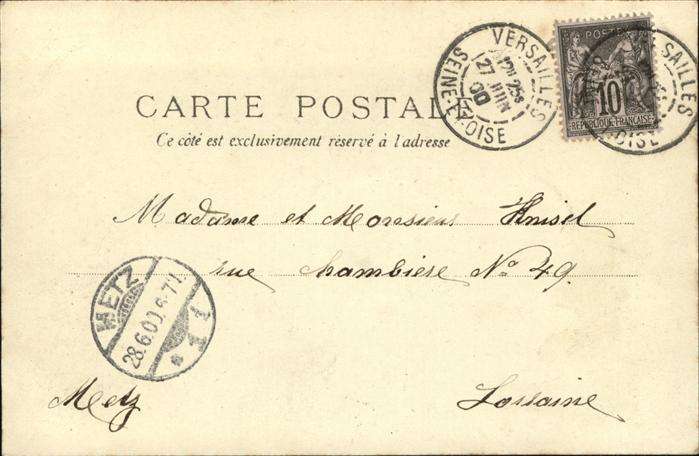 VERSAILLES
SEINE-ET-OISE
27 JUIN 00
POSTES
10
REPUBLIQUE FRANCAISE
CARTE POSTALE
Ce côté est exclusivement réservé à l'adresse
Madame et Monsieur Knisel
rue Chambiere No 49.
METZ
28.6.00.6-7 V.
* 1 1
Metz Lorraine